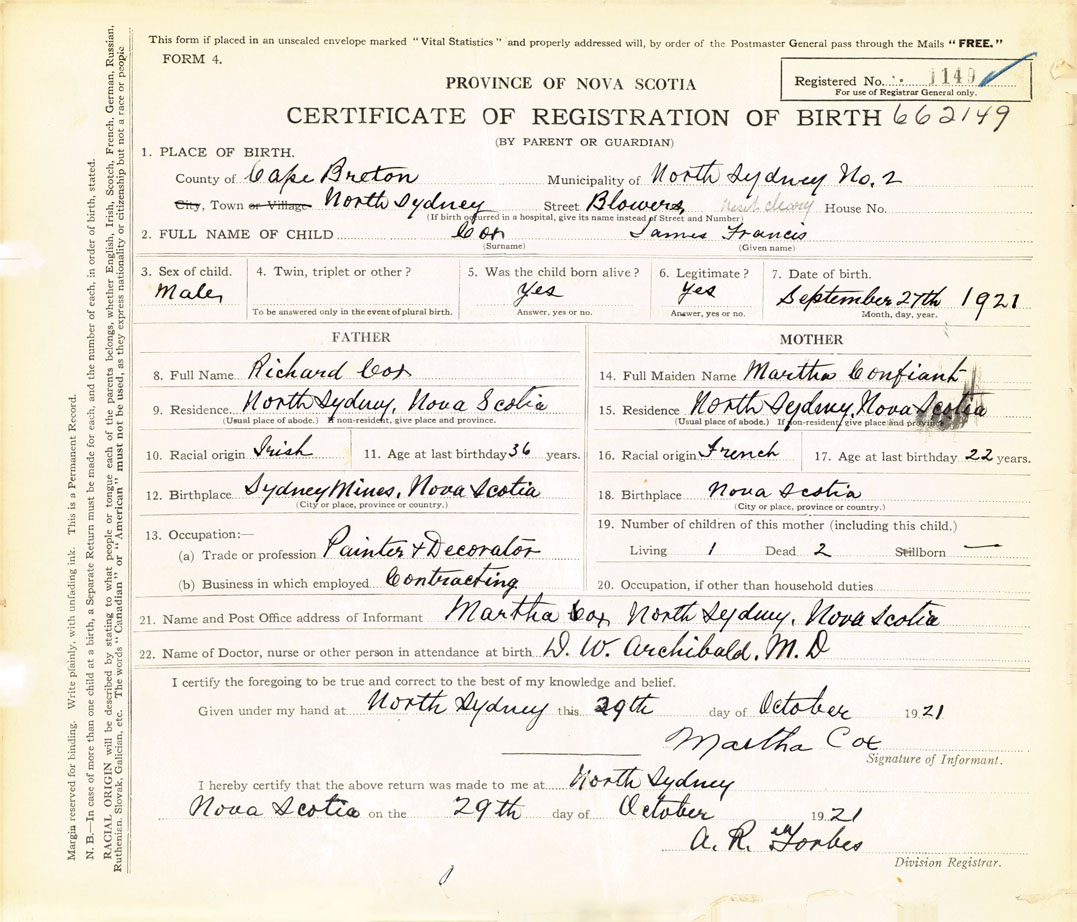 This form if placed in an unsealed envelope marked "Vital Statistics" and properly addressed will, by order of the Postmaster General pass through the Mails "FREE."
FORM 4.
Registered No. 1149
For use of Registrar General only.
PROVINCE OF NOVA SCOTIA
CERTIFICATE OF REGISTRATION OF BIRTH 662149
(BY PARENT OR GUARDIAN)
1. PLACE OF BIRTH.
County of Cape Breton Municipality of North Sydney No. 2
City, Town or Village North Sydney Street Blowers House No.
(If birth occurred in a hospital, give its name instead of Street and Number)
2. FULL NAME OF CHILD Cox James Francis
(Surname) (Given name)
3. Sex of child. 4. Twin, triplet or other? 5. Was the child born alive? 6. Legitimate? 7. Date of birth.
Male Yes Yes September 27th 1921
To be answered only in the event of plural birth. Answer, yes or no. Answer, yes or no. Month, day, year.
FATHER
8. Full Name Richard Cox
9. Residence North Sydney, Nova Scotia
(Usual place of abode.) If non-resident, give place and province.
10. Racial origin Irish 11. Age at last birthday 36 years.
12. Birthplace Sydney Mines, Nova Scotia
(City or place, province or country.)
13. Occupation:—
(a) Trade or profession Painter & Decorator
(b) Business in which employed Contracting
MOTHER
14. Full Maiden Name Martha Confiant
15. Residence North Sydney, Nova Scotia
(Usual place of abode.) If non-resident, give place and province
16. Racial origin French 17. Age at last birthday 22 years.
18. Birthplace Nova Scotia
(City or place, province or country.)
19. Number of children of this mother (including this child.)
Living 1 Dead 2 Stillborn —
20. Occupation, if other than household duties
21. Name and Post Office address of Informant Martha Cox, North Sydney, Nova Scotia
22. Name of Doctor, nurse or other person in attendance at birth D. W. Archibald, M. D
I certify the foregoing to be true and correct to the best of my knowledge and belief.
Given under my hand at North Sydney this 29th day of October 1921
Martha Cox
Signature of Informant.
I hereby certify that the above return was made to me at North Sydney
Nova Scotia on the 29th day of October 1921
A. R. Forbes
Division Registrar.
Margin reserved for binding. Write plainly, with unfading ink. This is a Permanent Record.
N. B.—In case of more than one child at a birth, a Separate Return must be made for each, and the number of each, in order of birth, stated.
RACIAL ORIGIN will be described by stating to what people or tongue each of the parents belongs, whether English, Irish, Scotch, French, German, Russian,
Ruthenian, Slovak, Galician, etc. The words "Canadian" or "American" must not be used, as they express nationality or citizenship but not a race or people